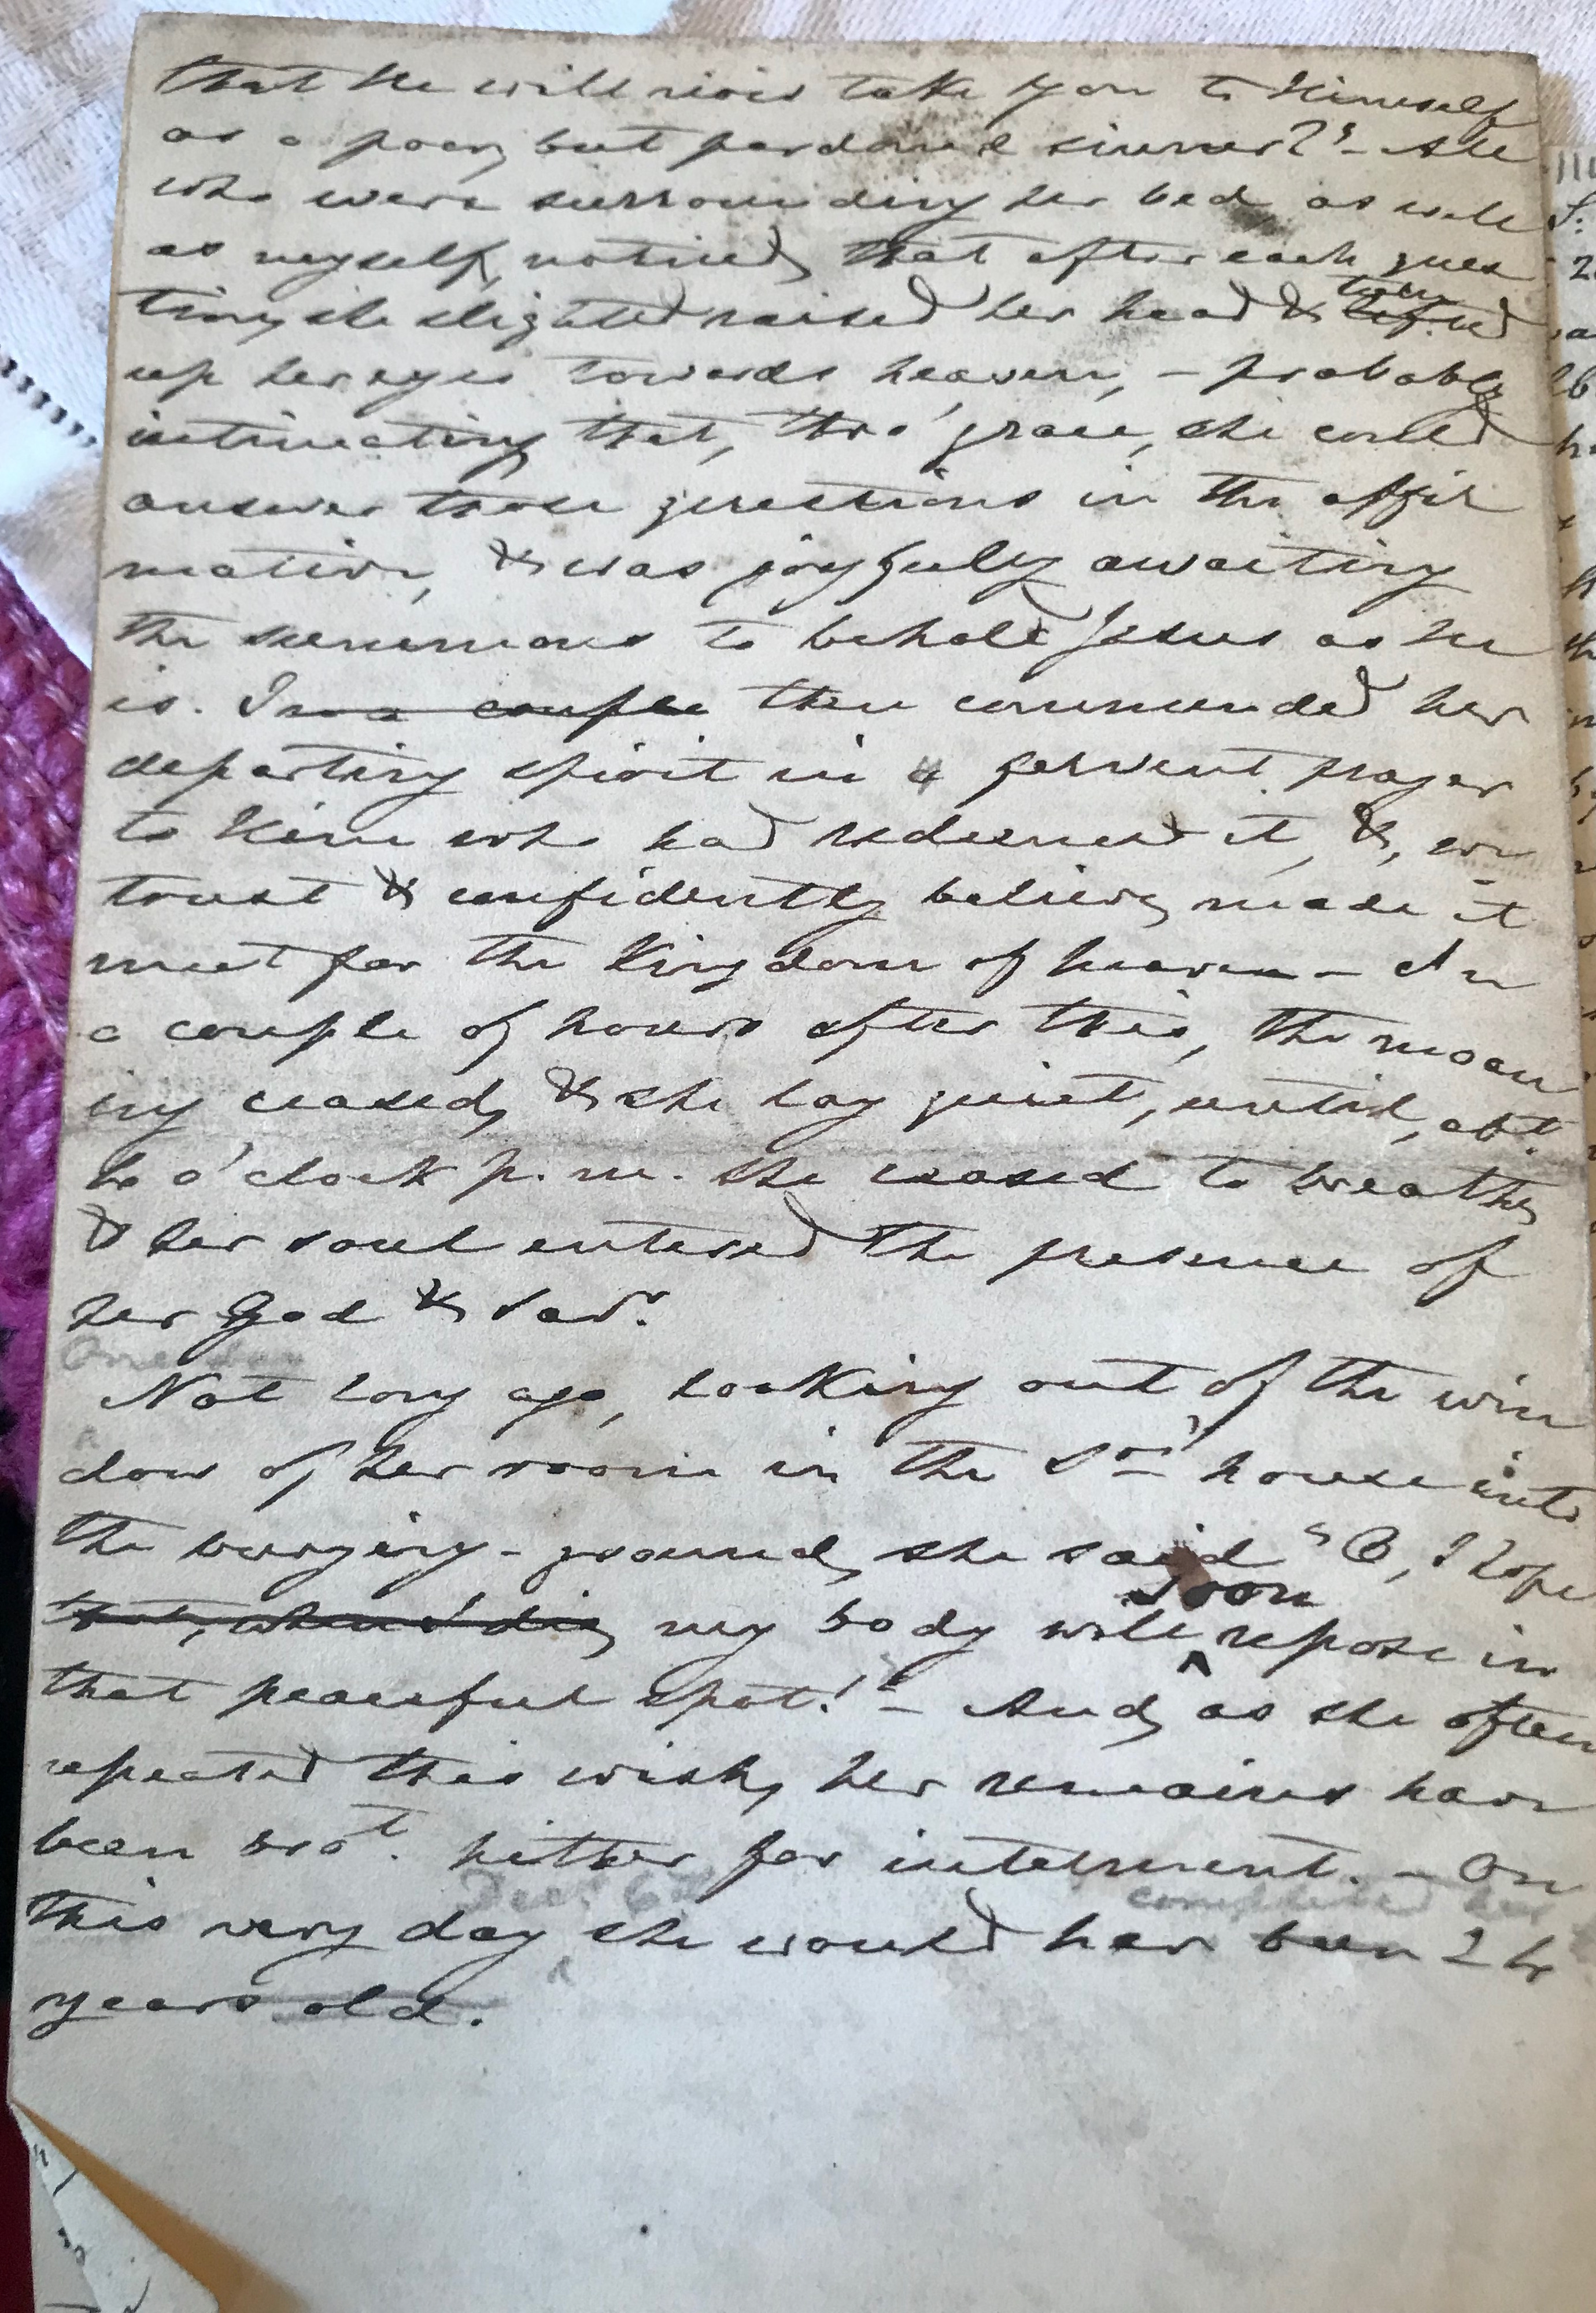 that He will now take you to Himself
as a poor, but pardoned sinner?" - All
who were surrounding her bed as well
as myself, noticed, that after each ques
tion, she slighted raised her head &
up her eyes towards heaven, - probably
intimating that, thro' grace, she could
answer those questions in the affir
mative, & was joyfully awaiting
the summons to behold Jesus as he
is. I in a couple then commended her
departing spirit in a fervent prayer
to Him who had redeemed it, &, we
trust & confidently believe, made it
meet for the Kingdom of heaven - In
a couple of hours after this, the moan
ing ceased, & she lay quiet, until, abt.
o'clock p.m. she ceased to breathe,
& her soul entered the presence of
her God & Savr.
One day
Not long ago, looking out of the win
dow of her room in the house into
the burying-ground, she said "O, I hope
that, when I die, my body will soon repose in
that peaceful spot!" - And, as she often
repeated this wish, her remains have
been brot. hither for interment. - On
Dec. 6th completed her
this very day she would hav been 24
years old.